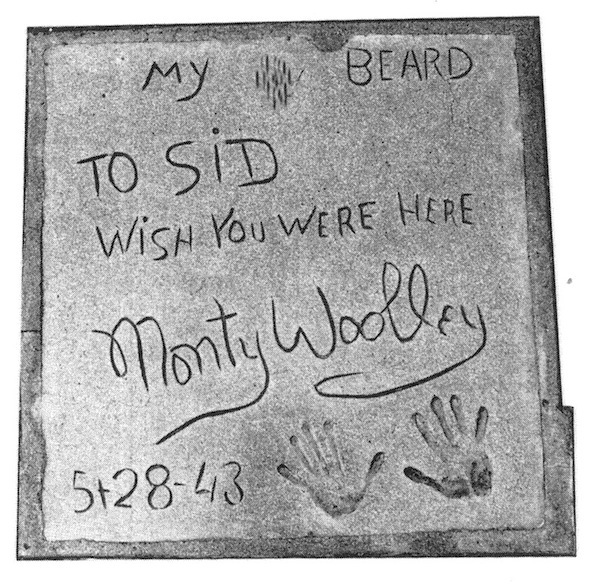 MY BEARD
TO SiD
WiSH YOU WERE HERE
Monty Woolley
5-28-43